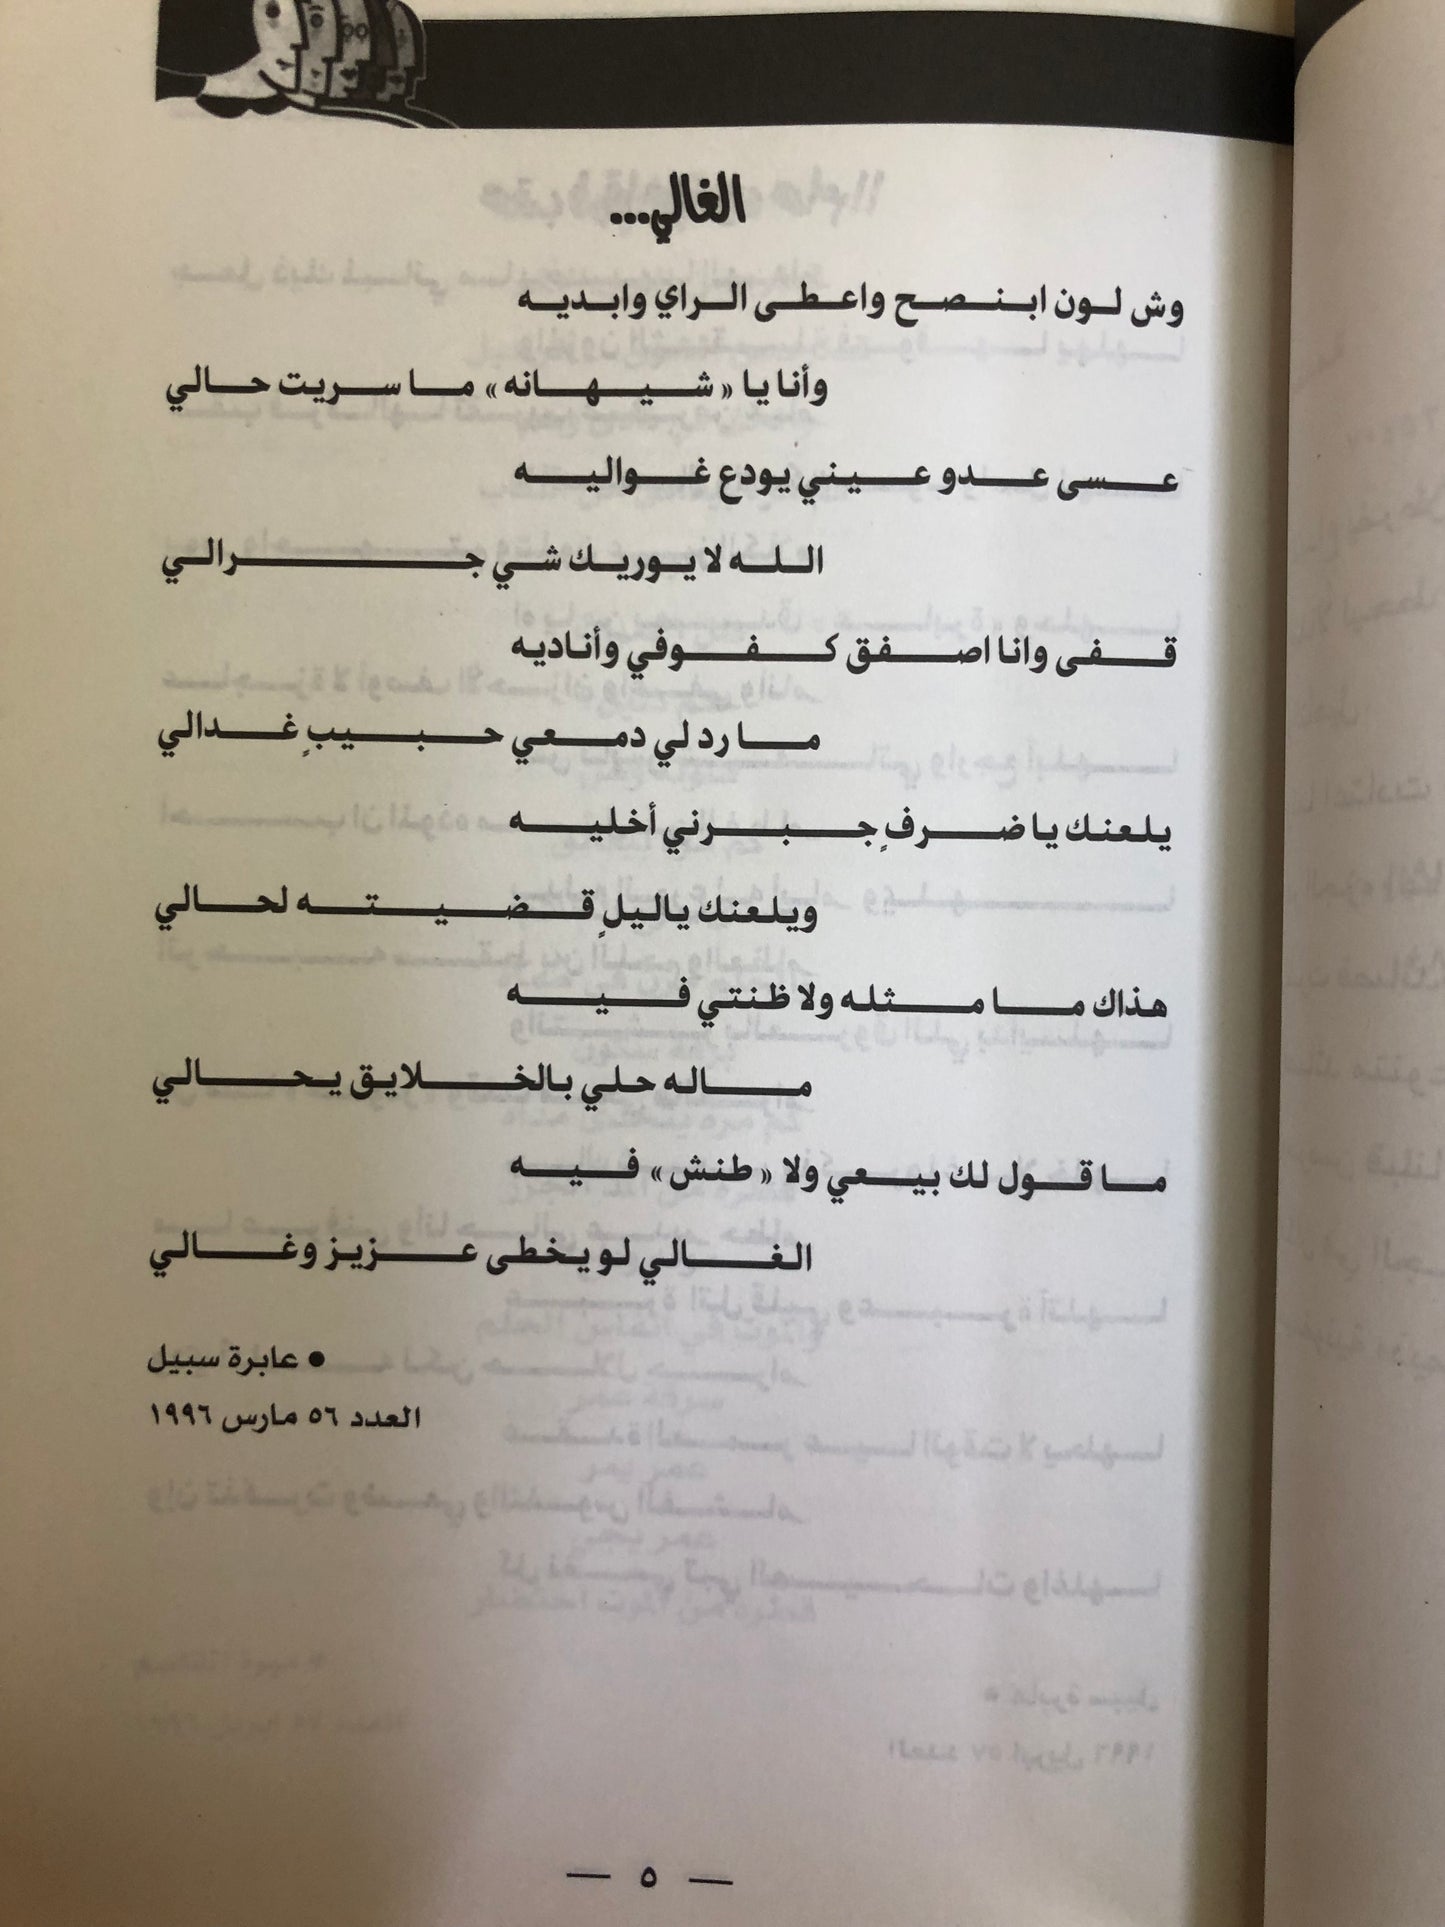 الغالي...
وش لون ابنصح واعطى الراي وابديه
وأنا يا « شيهانه » ما سريت حالي
عسى عدو عيني يودع غواليه
الله لا يوريك شي جرالي
قفى وانا اصفق كفوفي وأناديه
ما رد لي دمعي حبيبٍ غدالي
يلعنك يا ضرفٍ جبرني أخليه
ويلعنك ياليلٍ قضيته لحالي
هذاك ما مثله ولا ظنتي فيه
ماله حلي بالخلايق يحالي
ما قول لك بيعي ولا « طنش » فيه
الغالي لو يخطى عزيز وغالي
● عابرة سبيل
العدد ٥٦ مارس ١٩٩٦
— ٥ —